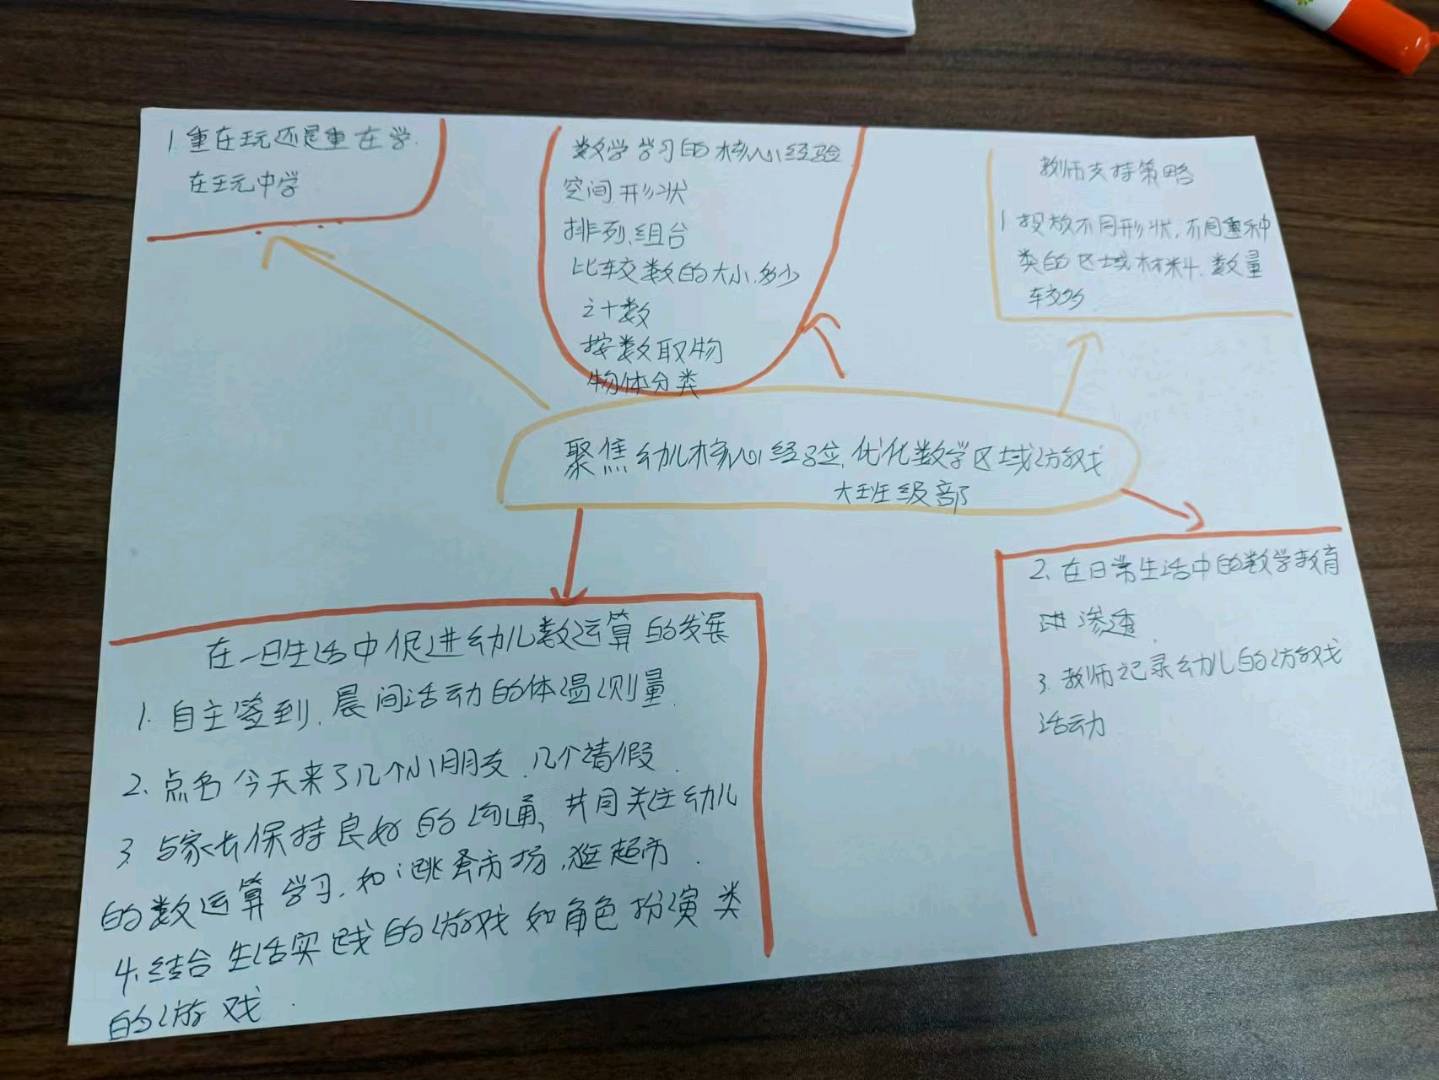 1 重在玩还是重在学
在玩中学
数学学习的核心经验
空间形状
排列、组合
比较数的大小、多少
计数
按数取物
物体分类
教师支持策略
1 投放不同形状、不同重种
类的区域材料、数量
较多
聚焦幼儿核心经验,优化数学区域游戏
大班级部
在一日生活中促进幼儿数运算的发展
1. 自主签到、晨间活动的体温测量
2. 点名 今天来了几个小朋友、几个请假
3 与家长保持良好的沟通、共同关注幼儿
的数运算学习,如:跳蚤市场、逛超市
4、结合生活实践的游戏 如角色扮演类
的游戏
2. 在日常生活中的数学教育
进渗透
3. 教师记录幼儿的游戏
活动